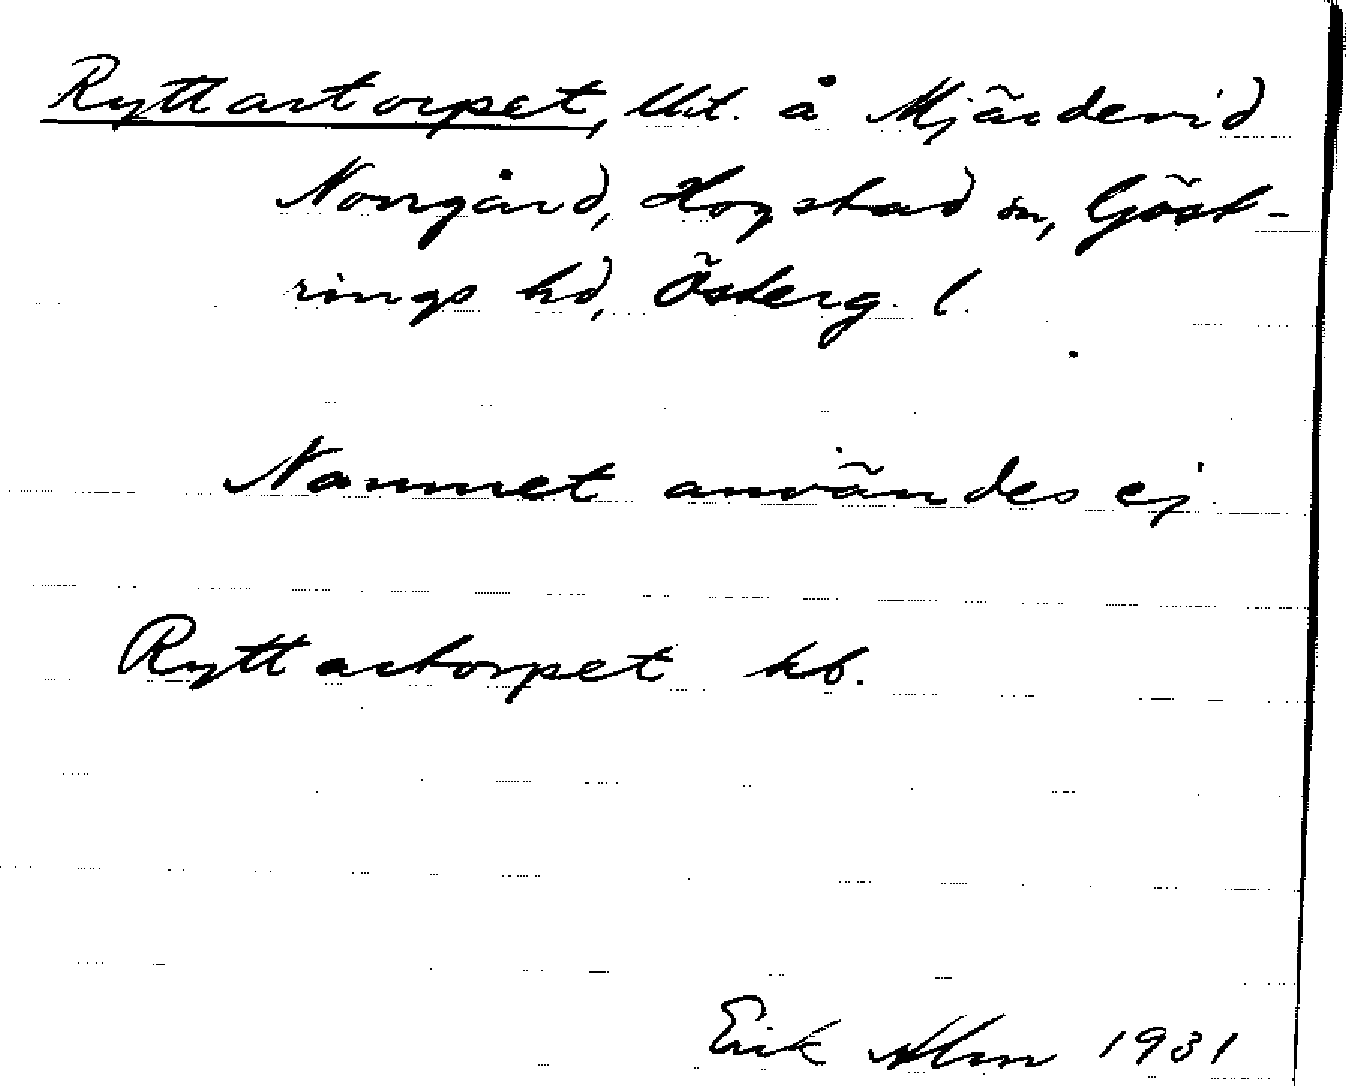 Ryttartorpet, lht. å Mjärdevid
Norrgård, Hogstad sn, Göst-
rings hd, Österg. l.
Namnet användes ej
Ryttartorpet kb.
Erik Alm 1931